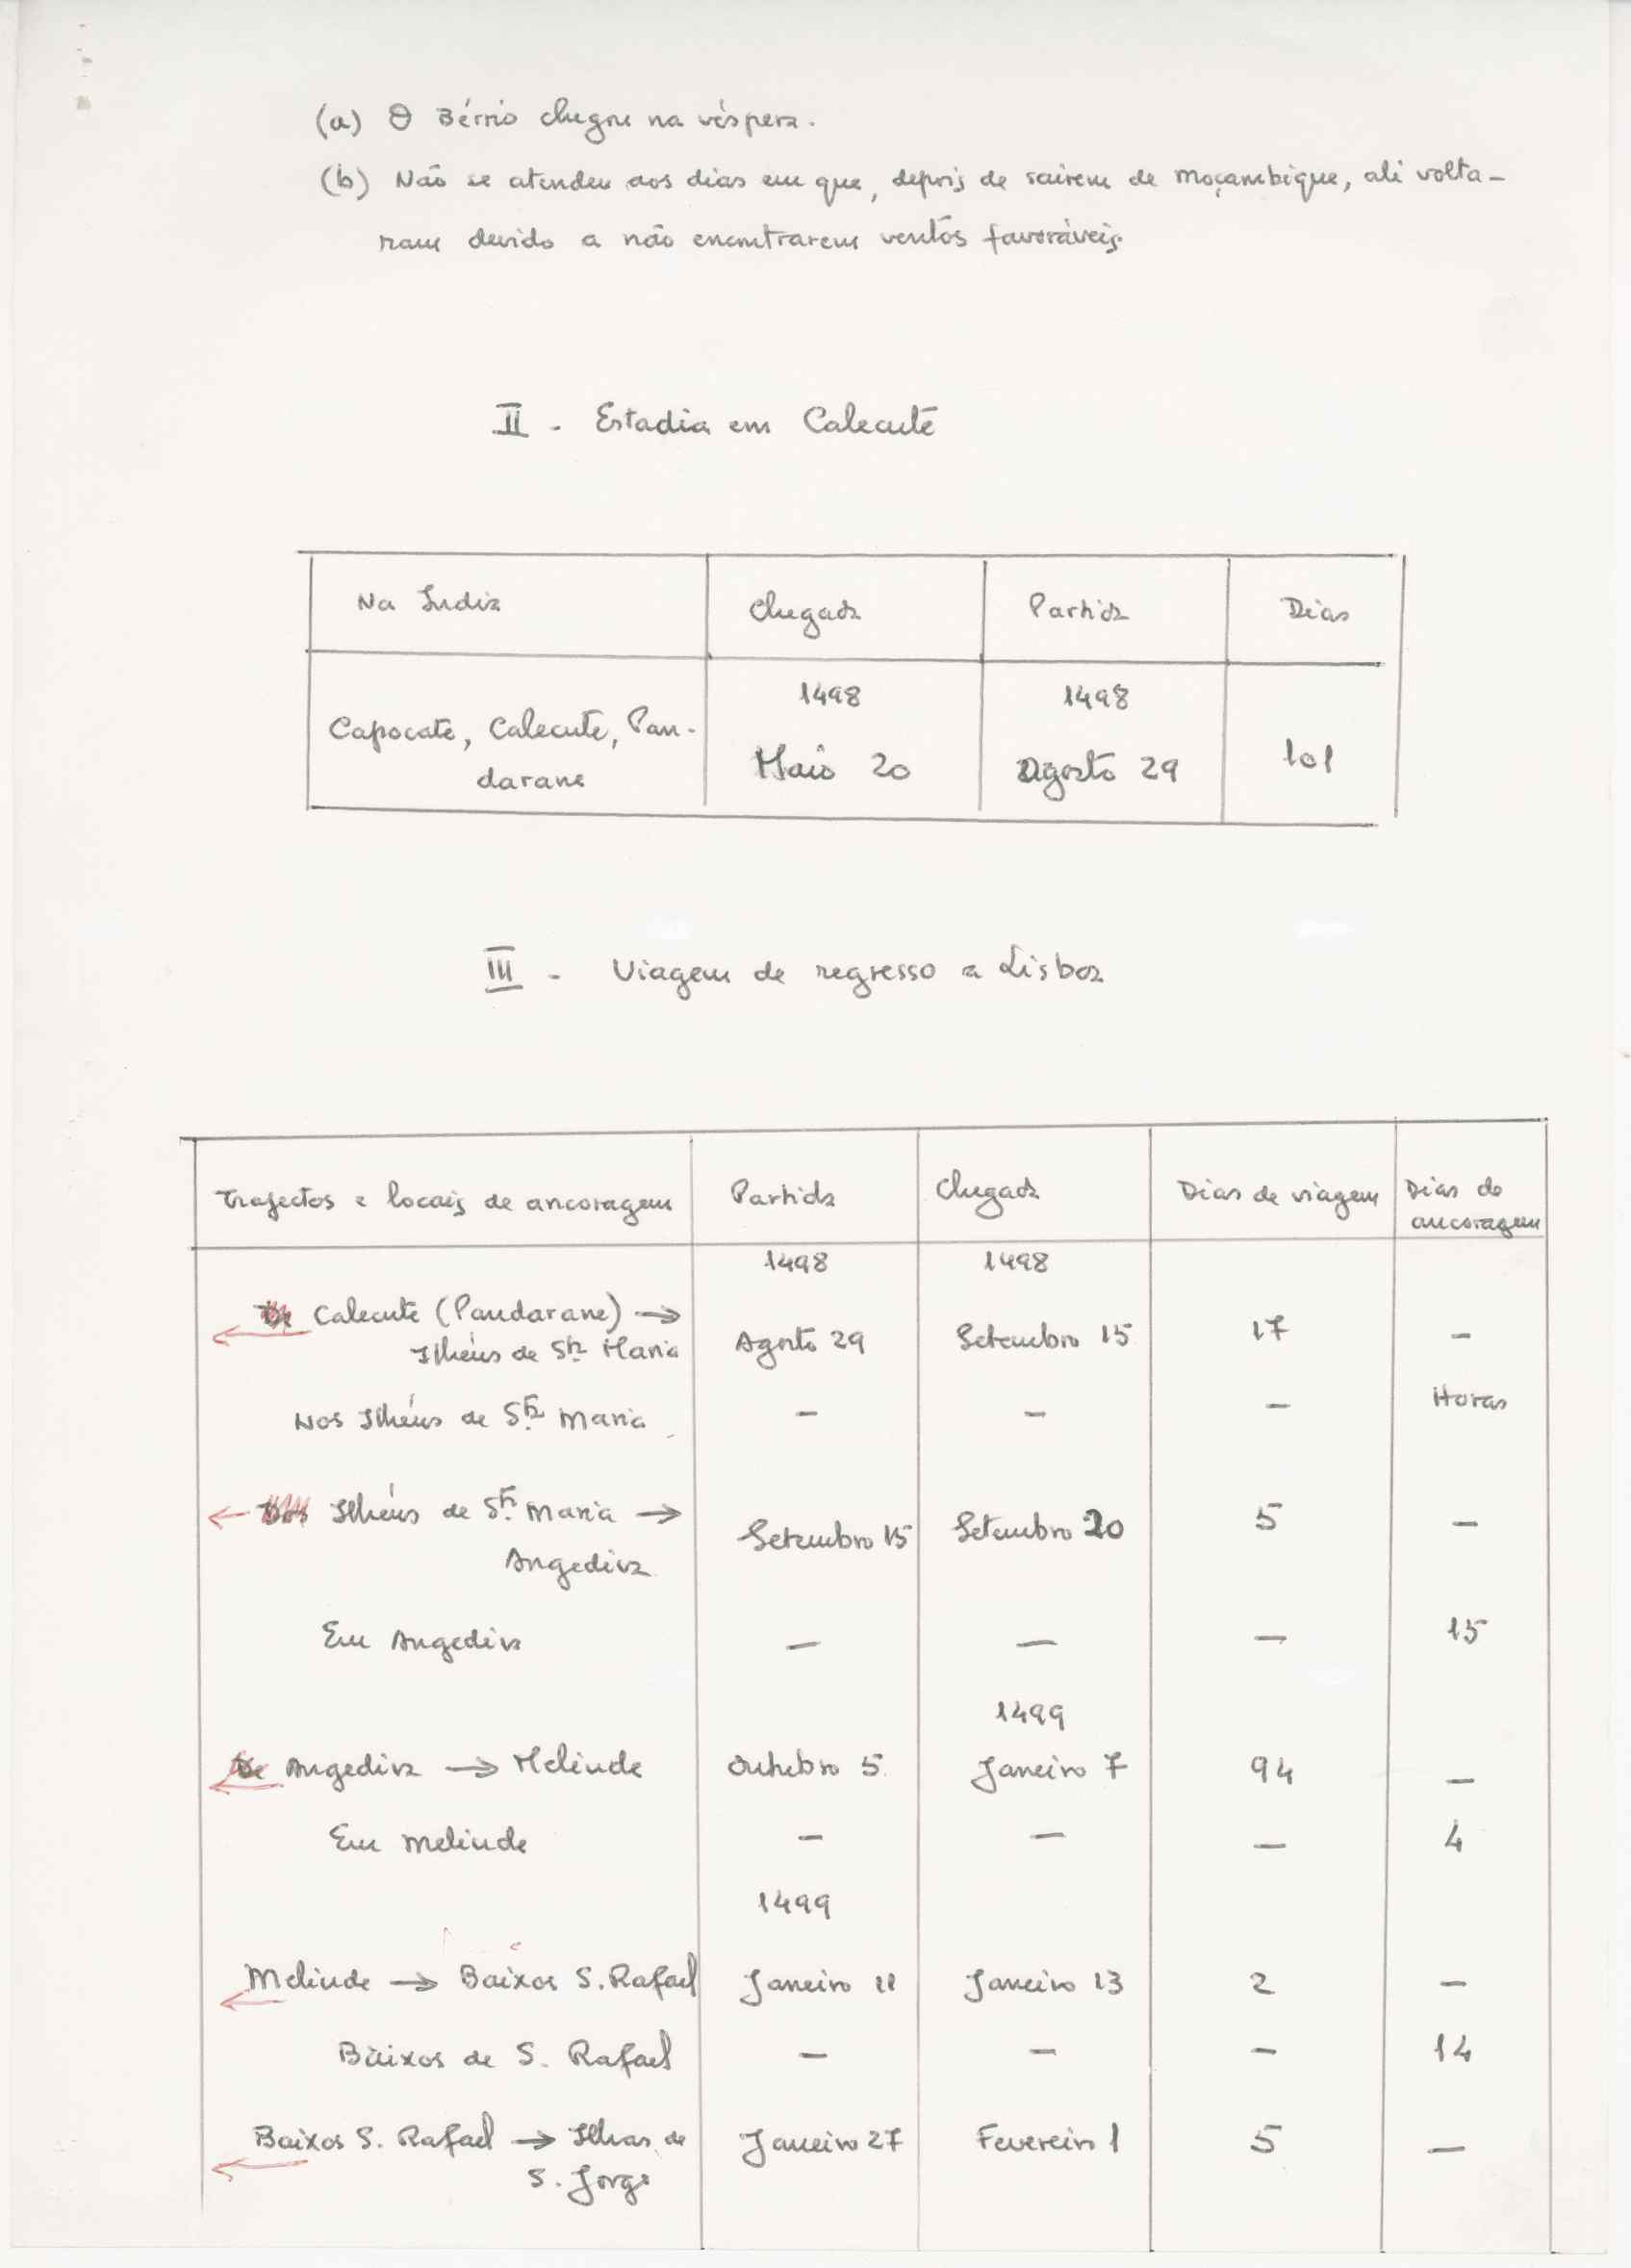 (a) O Bérrio chegou na véspera.
(b) Não se atendeu aos dias em que, depois de sairem de Moçambique, ali volta-
ram devido a não encontrarem ventos favoráveis.
II - Estadia em Calecute
Na India Chegada Partida Dias
1498 1498
Capocate, Calecute, Pan-
darane Maio 20 Agosto 29 101
III - Viagem de regresso a Lisboa
Trajectos e locais de ancoragem Partida Chegada Dias de viagem Dias de
ancoragem
1498 1498
De Calecute (Pandarane) →
Ilhéus de Sta Maria Agosto 29 Setembro 15 17 —
Nos Ilhéus de Sta Maria — — — Horas
Dos Ilhéus de Sta Maria →
Angediva Setembro 15 Setembro 20 5 —
Em Angediva — — — 15
1499
De Angediva → Melinde Outubro 5 Janeiro 7 94 —
Em Melinde — — — 4
1499
Melinde → Baixos S. Rafael Janeiro 11 Janeiro 13 2 —
Baixos de S. Rafael — — — 14
Baixos S. Rafael → Ilhas de Janeiro 27 Fevereiro 1 5 —
S. Jorge